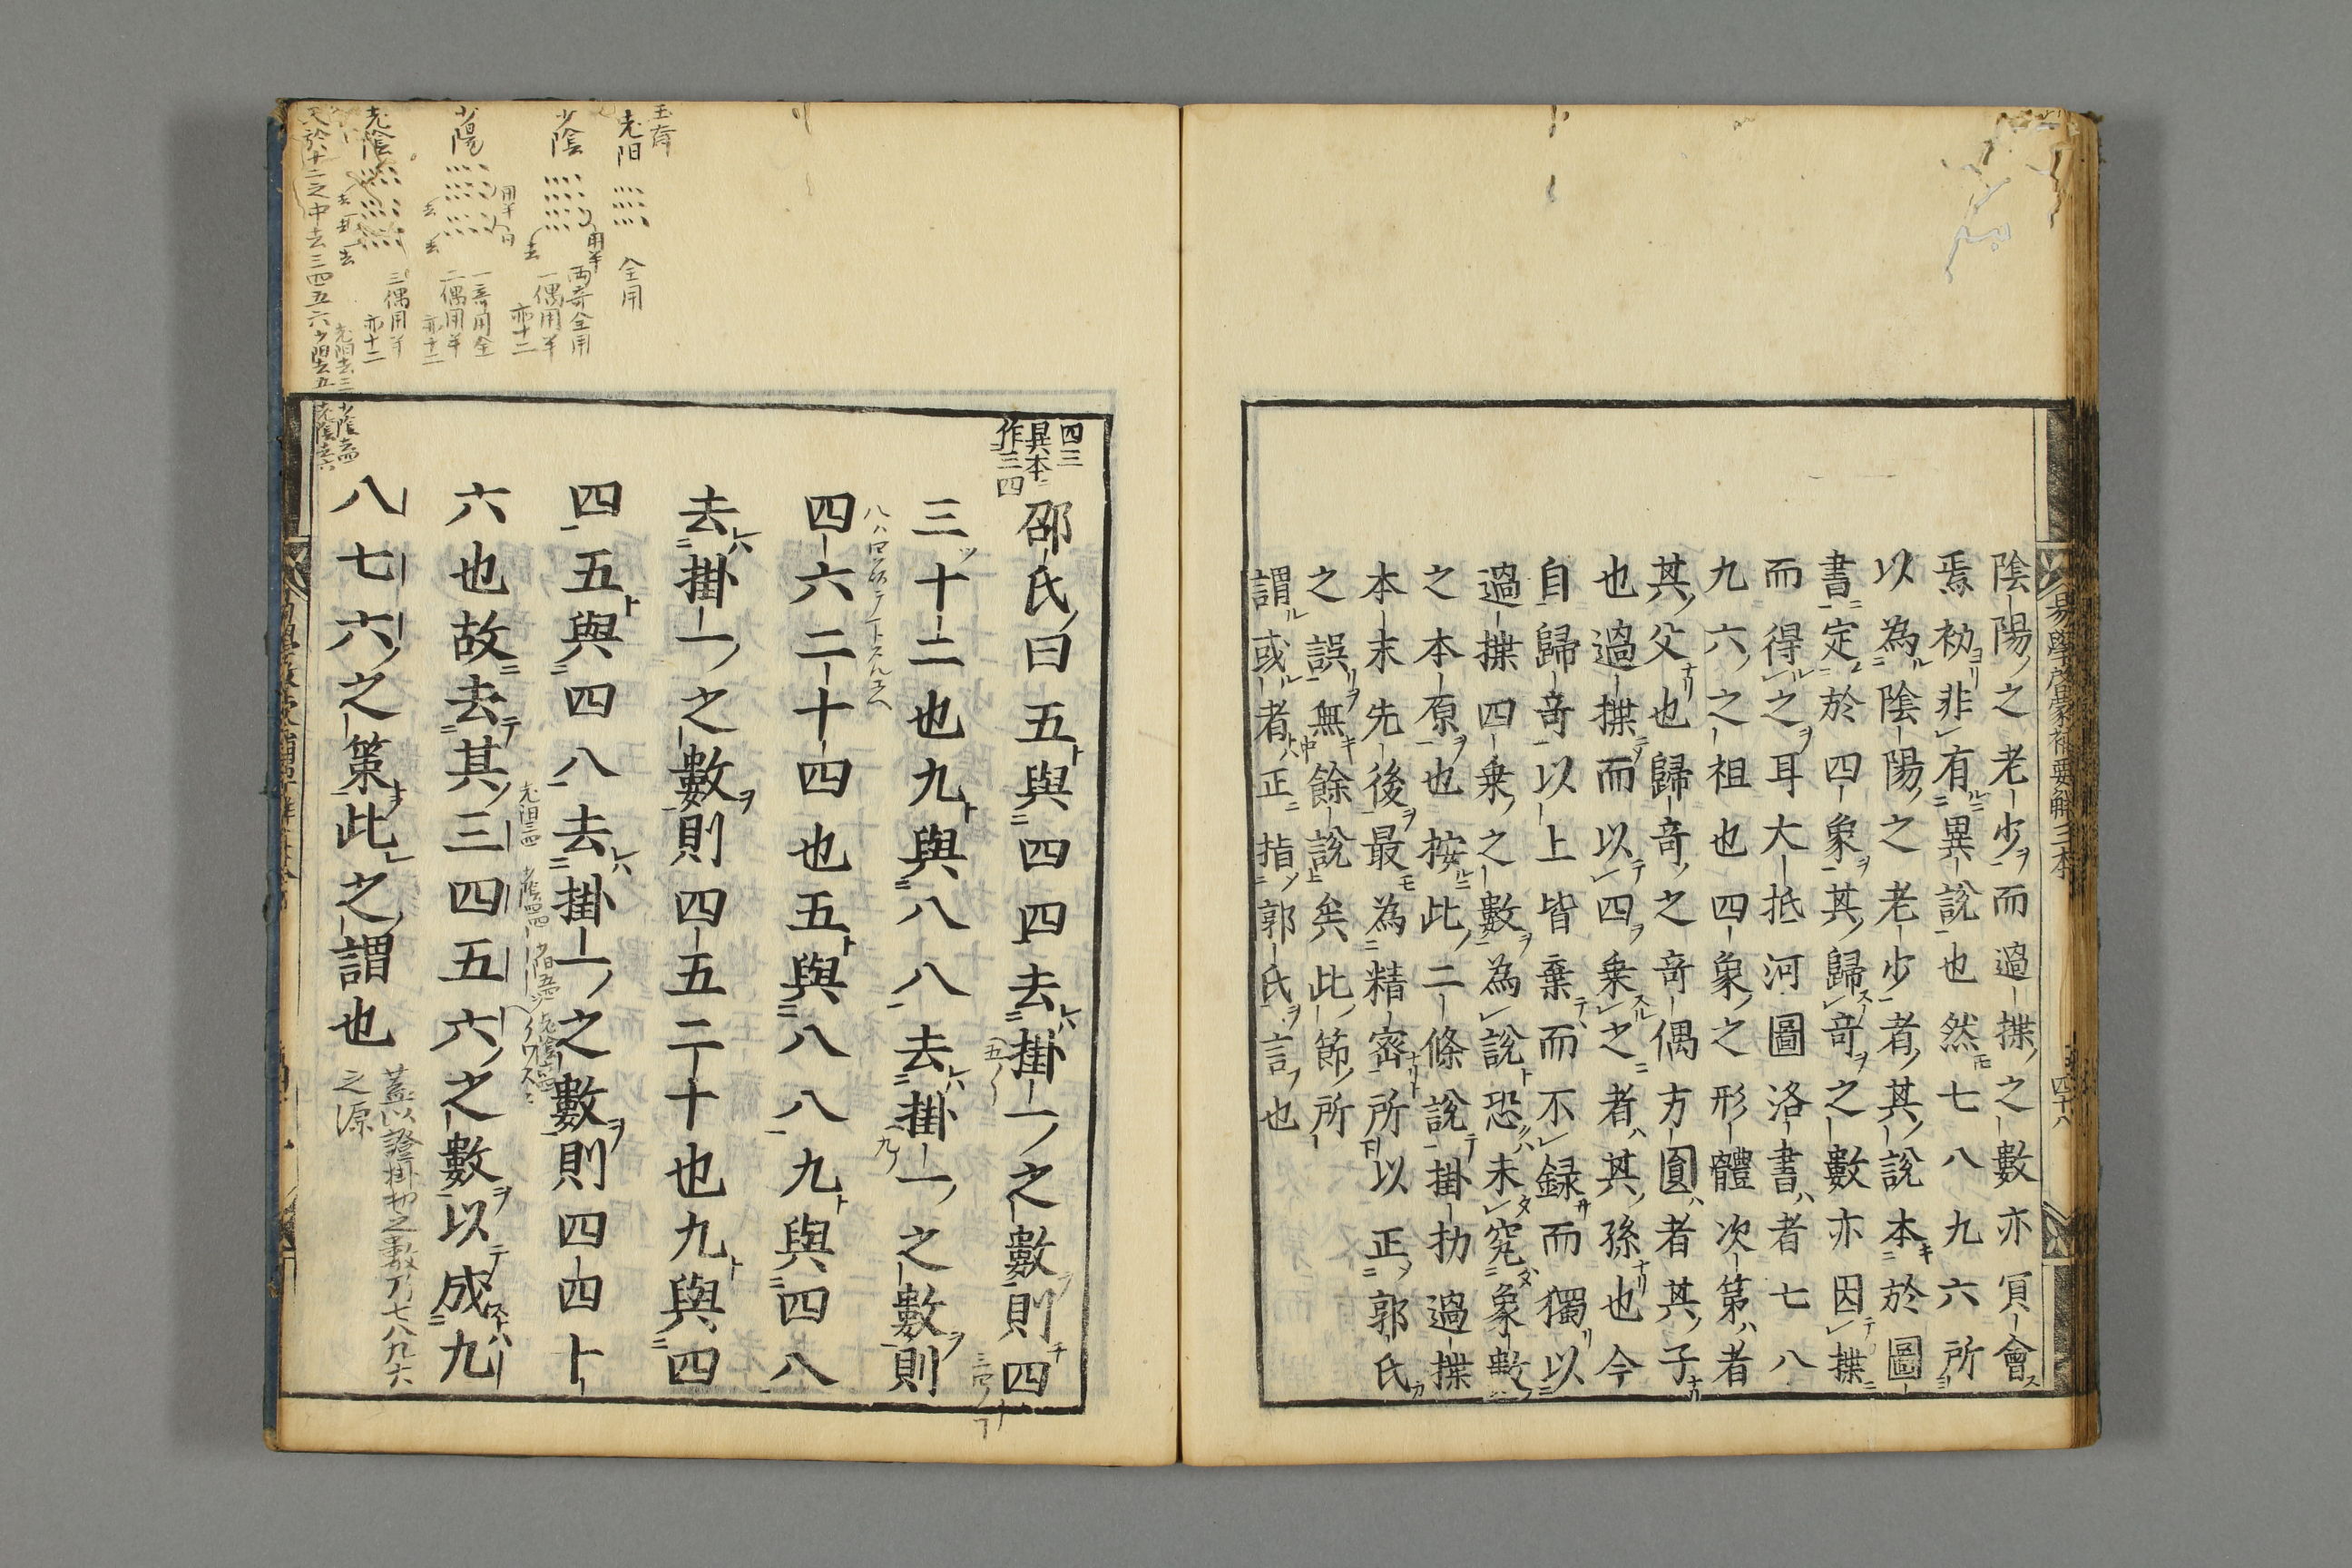 陰陽之老少而過揲之數亦㝠會
焉初非有異說也然七八九六所
以為陰陽之老少者其說本於圖
書定於四象其歸竒之數亦因揲
而得之耳大抵河圖洛書者七八
九六之祖也四象之形體次第者
其父也歸竒之竒偶方圓者其子
也過揲而以四乗之者其孫也今
自歸竒以上皆棄而不録而獨以
過揲四乗之數為說恐未究象數
之本原也按此二條說掛扐過揲
本末先後最為精宻所以正郭氏
之誤無餘說矣此節所
謂或者正指郭氏言也
易學啓蒙補要解三本
四十八
四三
異本
作三四
邵氏曰五與四四去掛一之數則四
三十二也九與八八去掛一之數則
四六二十四也五與八八九與四八
去掛一之數則四五二十也九與四
四五與四八去掛一之數則四四十
六也故去其三四五六之數以成九
八七六之策此之謂也
蓋以證掛扐之數乃七八九六
之源
玉斎
老阳 全用
少陰 用半 去 兩竒全用
一偶用半
亦十二
少陽 用半 去 去 一竒用全
二偶用半
亦十二
老陰 去 去 三偶用半
亦十二
又於十二之中去三四五六
老阳去三
少阳去五
少陰去四
老陰去六